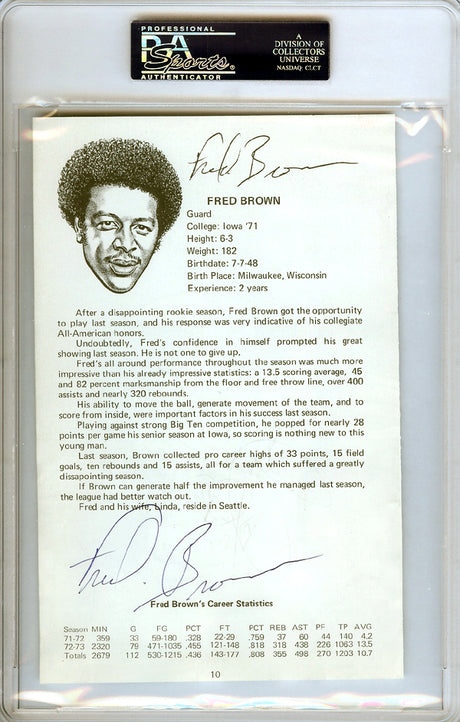 PROFESSIONAL
PSA
Sports®
AUTHENTICATOR
A
DIVISION OF
COLLECTORS
UNIVERSE
NASDAQ: CLCT
Fred Brown
FRED BROWN
Guard
College: Iowa '71
Height: 6-3
Weight: 182
Birthdate: 7-7-48
Birth Place: Milwaukee, Wisconsin
Experience: 2 years
After a disappointing rookie season, Fred Brown got the opportunity
to play last season, and his response was very indicative of his collegiate
All-American honors.
Undoubtedly, Fred's confidence in himself prompted his great
showing last season. He is not one to give up.
Fred's all around performance throughout the season was much more
impressive than his already impressive statistics: a 13.5 scoring average, 45
and 82 percent marksmanship from the floor and free throw line, over 400
assists and nearly 320 rebounds.
His ability to move the ball, generate movement of the team, and to
score from inside, were important factors in his success last season.
Playing against strong Big Ten competition, he popped for nearly 28
points per game his senior season at Iowa, so scoring is nothing new to this
young man.
Last season, Brown collected pro career highs of 33 points, 15 field
goals, ten rebounds and 15 assists, all for a team which suffered a greatly
dissapointing season.
If Brown can generate half the improvement he managed last season,
the league had better watch out.
Fred and his wife, Linda, reside in Seattle.
Fred. Brown
Fred Brown's Career Statistics
Season MIN G FG PCT FT PCT REB AST PF TP AVG
71-72 359 33 59-180 .328 22-29 .759 37 60 44 140 4.2
72-73 2320 79 471-1035 .455 121-148 .818 318 438 226 1063 13.5
Totals 2679 112 530-1215 .436 143-177 .808 355 498 270 1203 10.7
10